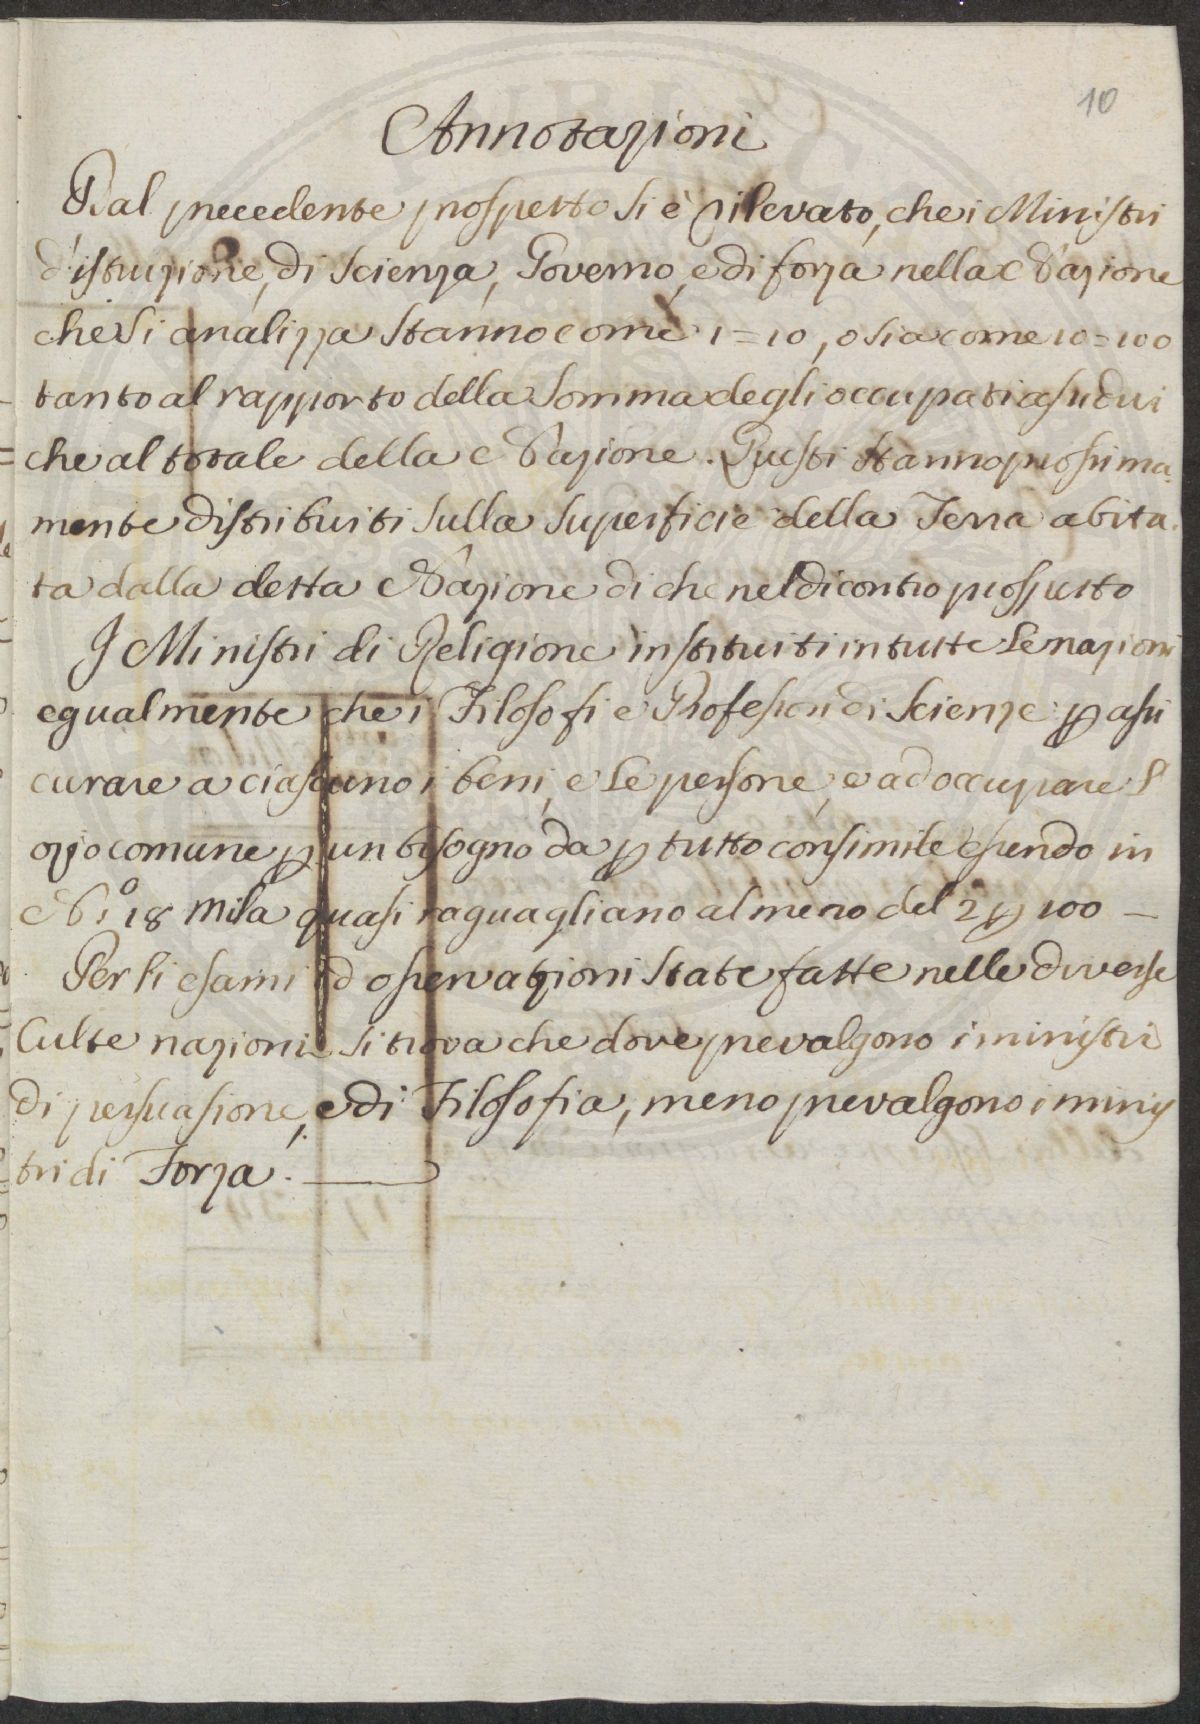 10
Annotazioni
Dal precedente prospetto si è rilevato, che i Ministri
d'istruzione, di scienza, Governo, e di forza nella Nazione
che si analizza stanno come 1=10, o sia come 10=100
tanto al rapporto della somma degli occupati
che al totale della Nazione. Questi stanno prossima
mente distribuiti sulla superficie della Terra abita.
ta dalla detta Nazione di che nel dicontro prospetto
I Ministri di Religione instituiti in tutte le nazioni
egualmente che i Filosofi e Professori di Scienze p assi
curare a ciascuno i beni, e le persone, e ad occupare l'
ozio comune p un bisogno da p tutto consimile essendo in
N.º 18 mila quasi raguagliano al meno del 2 p 100 —
Per li esami ed osservazioni state fatte nelle diverse
Culte nazioni si trova che dove prevalgono i ministri
di persuasione, e di Filosofia, meno prevalgono i minis
tri di Forza.